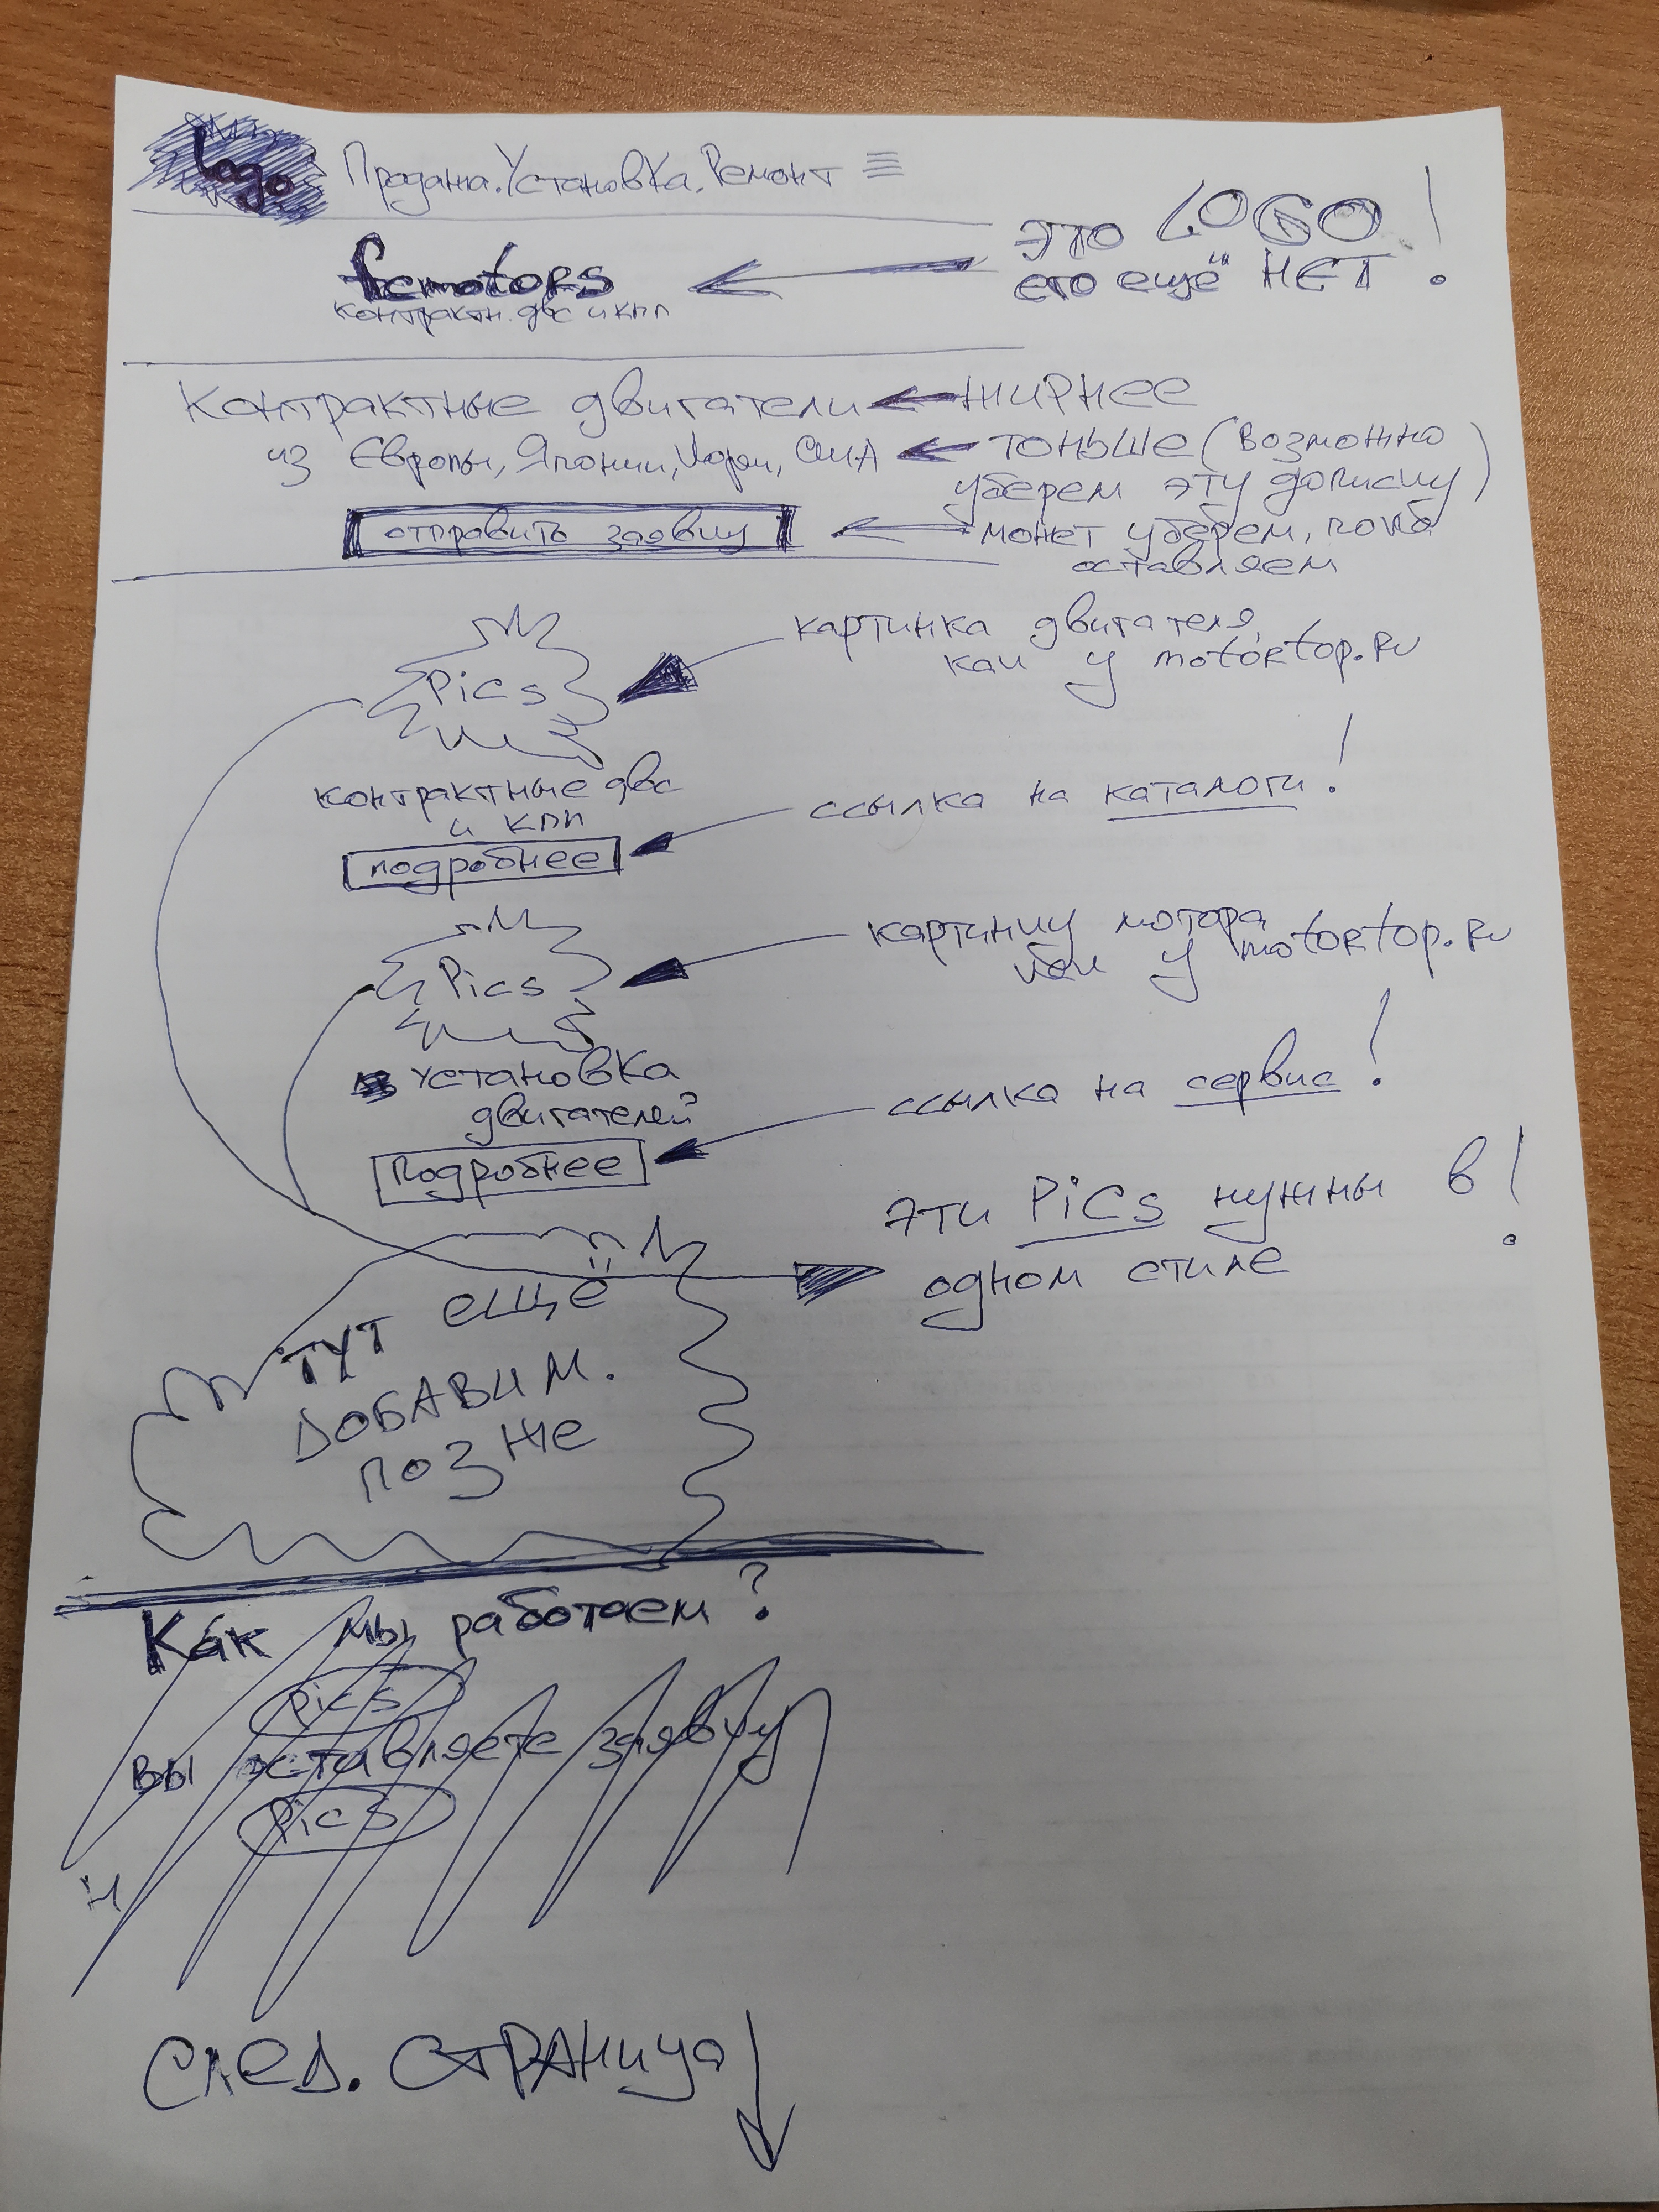 Logo Продажа.Установка.Ремонт
это LOGO!
его ещё "НЕТ"
fcmotors
контрактн. двс и кпп
Контрактные двигатели жирнее
из Европы, Японии, Кореи, США тоньше (возможно
уберем эту дописку)
отправить заявку может уберем, пока
оставляем
Pics
картинка двигателя,
как у motortop.ru
контрактные двс
и кпп
ссылка на каталоги!
подробнее
Pics
картинку мотора
как у motortop.ru
установка
двигателей
ссылка на сервис!
Подробнее
эти Pics нужны в
одном стиле!
тут ещё
ДОБАВИМ.
позже
Как мы работаем?
pics
вы оставляете заявку
pics
След. СТРАНица